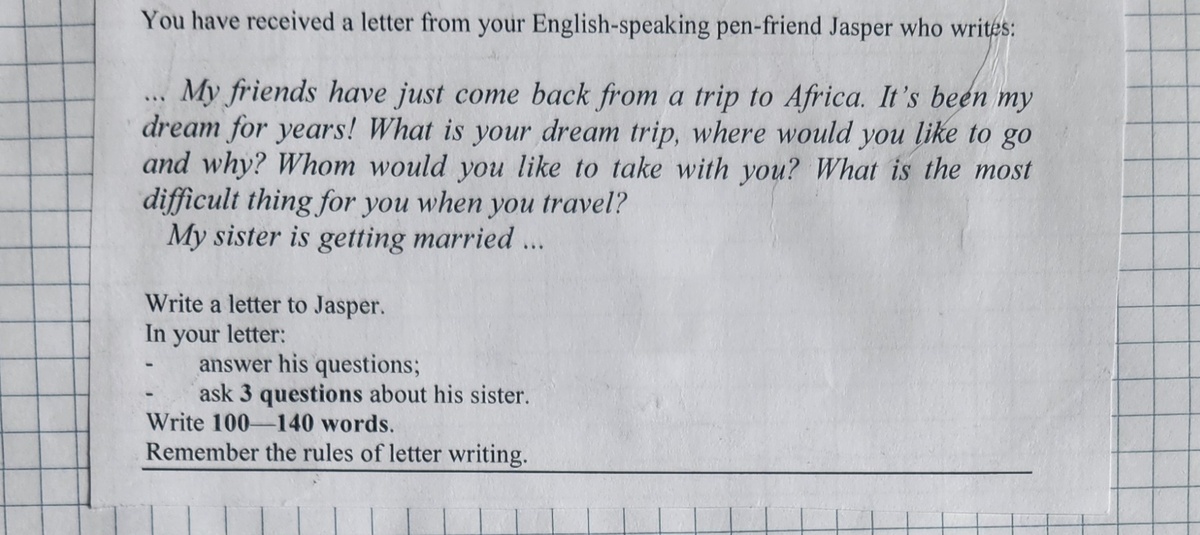 You have received a letter from your English-speaking pen-friend Jasper who writes:
... My friends have just come back from a trip to Africa. It's been my
dream for years! What is your dream trip, where would you like to go
and why? Whom would you like to take with you? What is the most
difficult thing for you when you travel?
My sister is getting married ...
Write a letter to Jasper.
In your letter:
- answer his questions;
- ask 3 questions about his sister.
Write 100—140 words.
Remember the rules of letter writing.